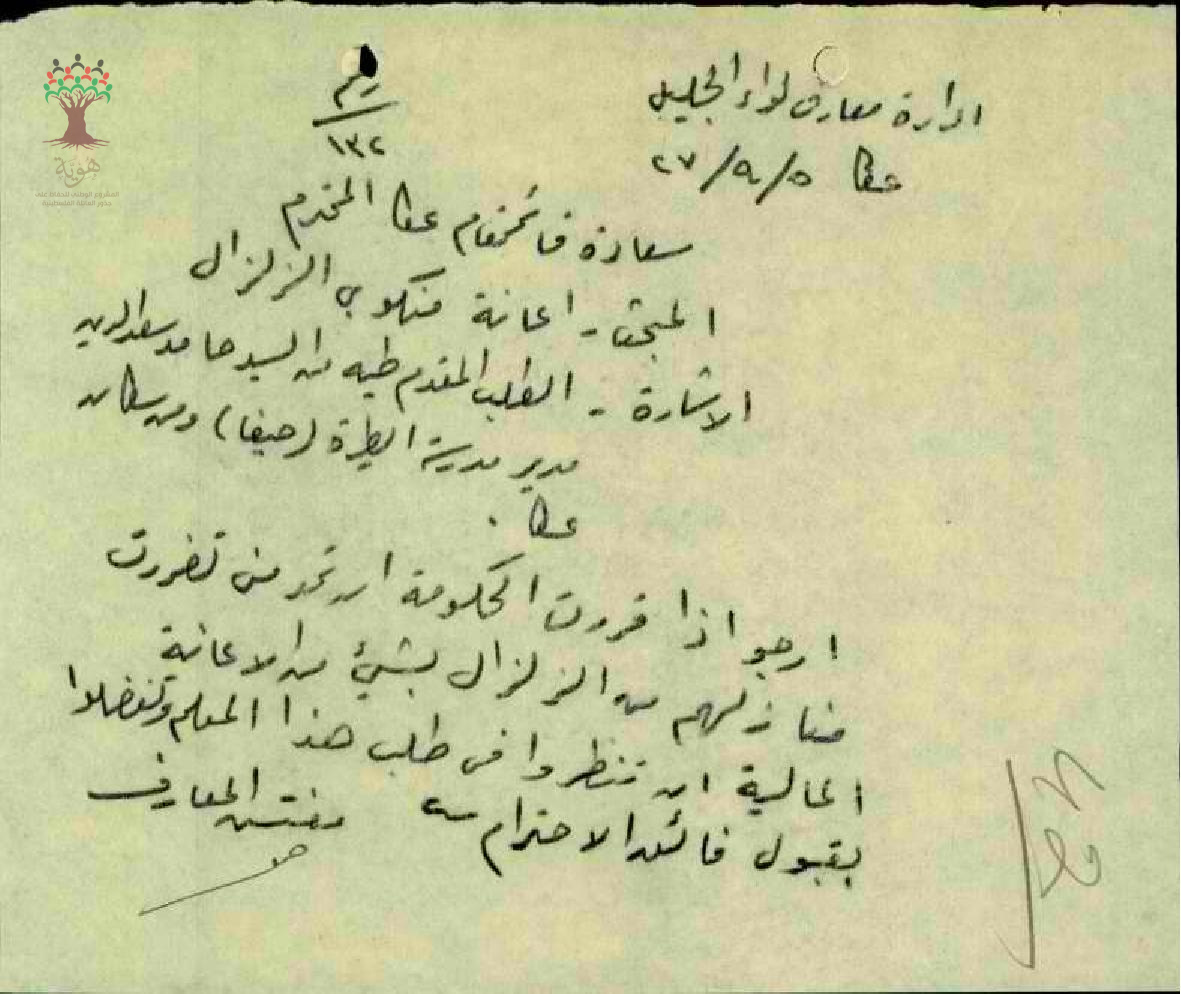 ادارة معارف لواء الجليل
رقم
١٣٢
عكا ٥/٩/٢٧
سعادة قائمقام عكا المحترم
المبحث - اعانة منكوبي الزلزال
الاشارة - الطلب المقدم طيه من السيد حامد سعد الدين
مدير مدرسة الطيرة (حيفا) ومن سكان
عكا .
ارجو اذا قررت الحكومة ان تمد من تضررت
منازلهم من الزلزال بشيء من الاعانة
المالية ان تنظروا في طلب هذا المعلم وتفضلوا
بقبول فائق الاحترام
مفتش المعارف
هوية
المشروع الوطني للحفاظ على
جذور العائلة الفلسطينية